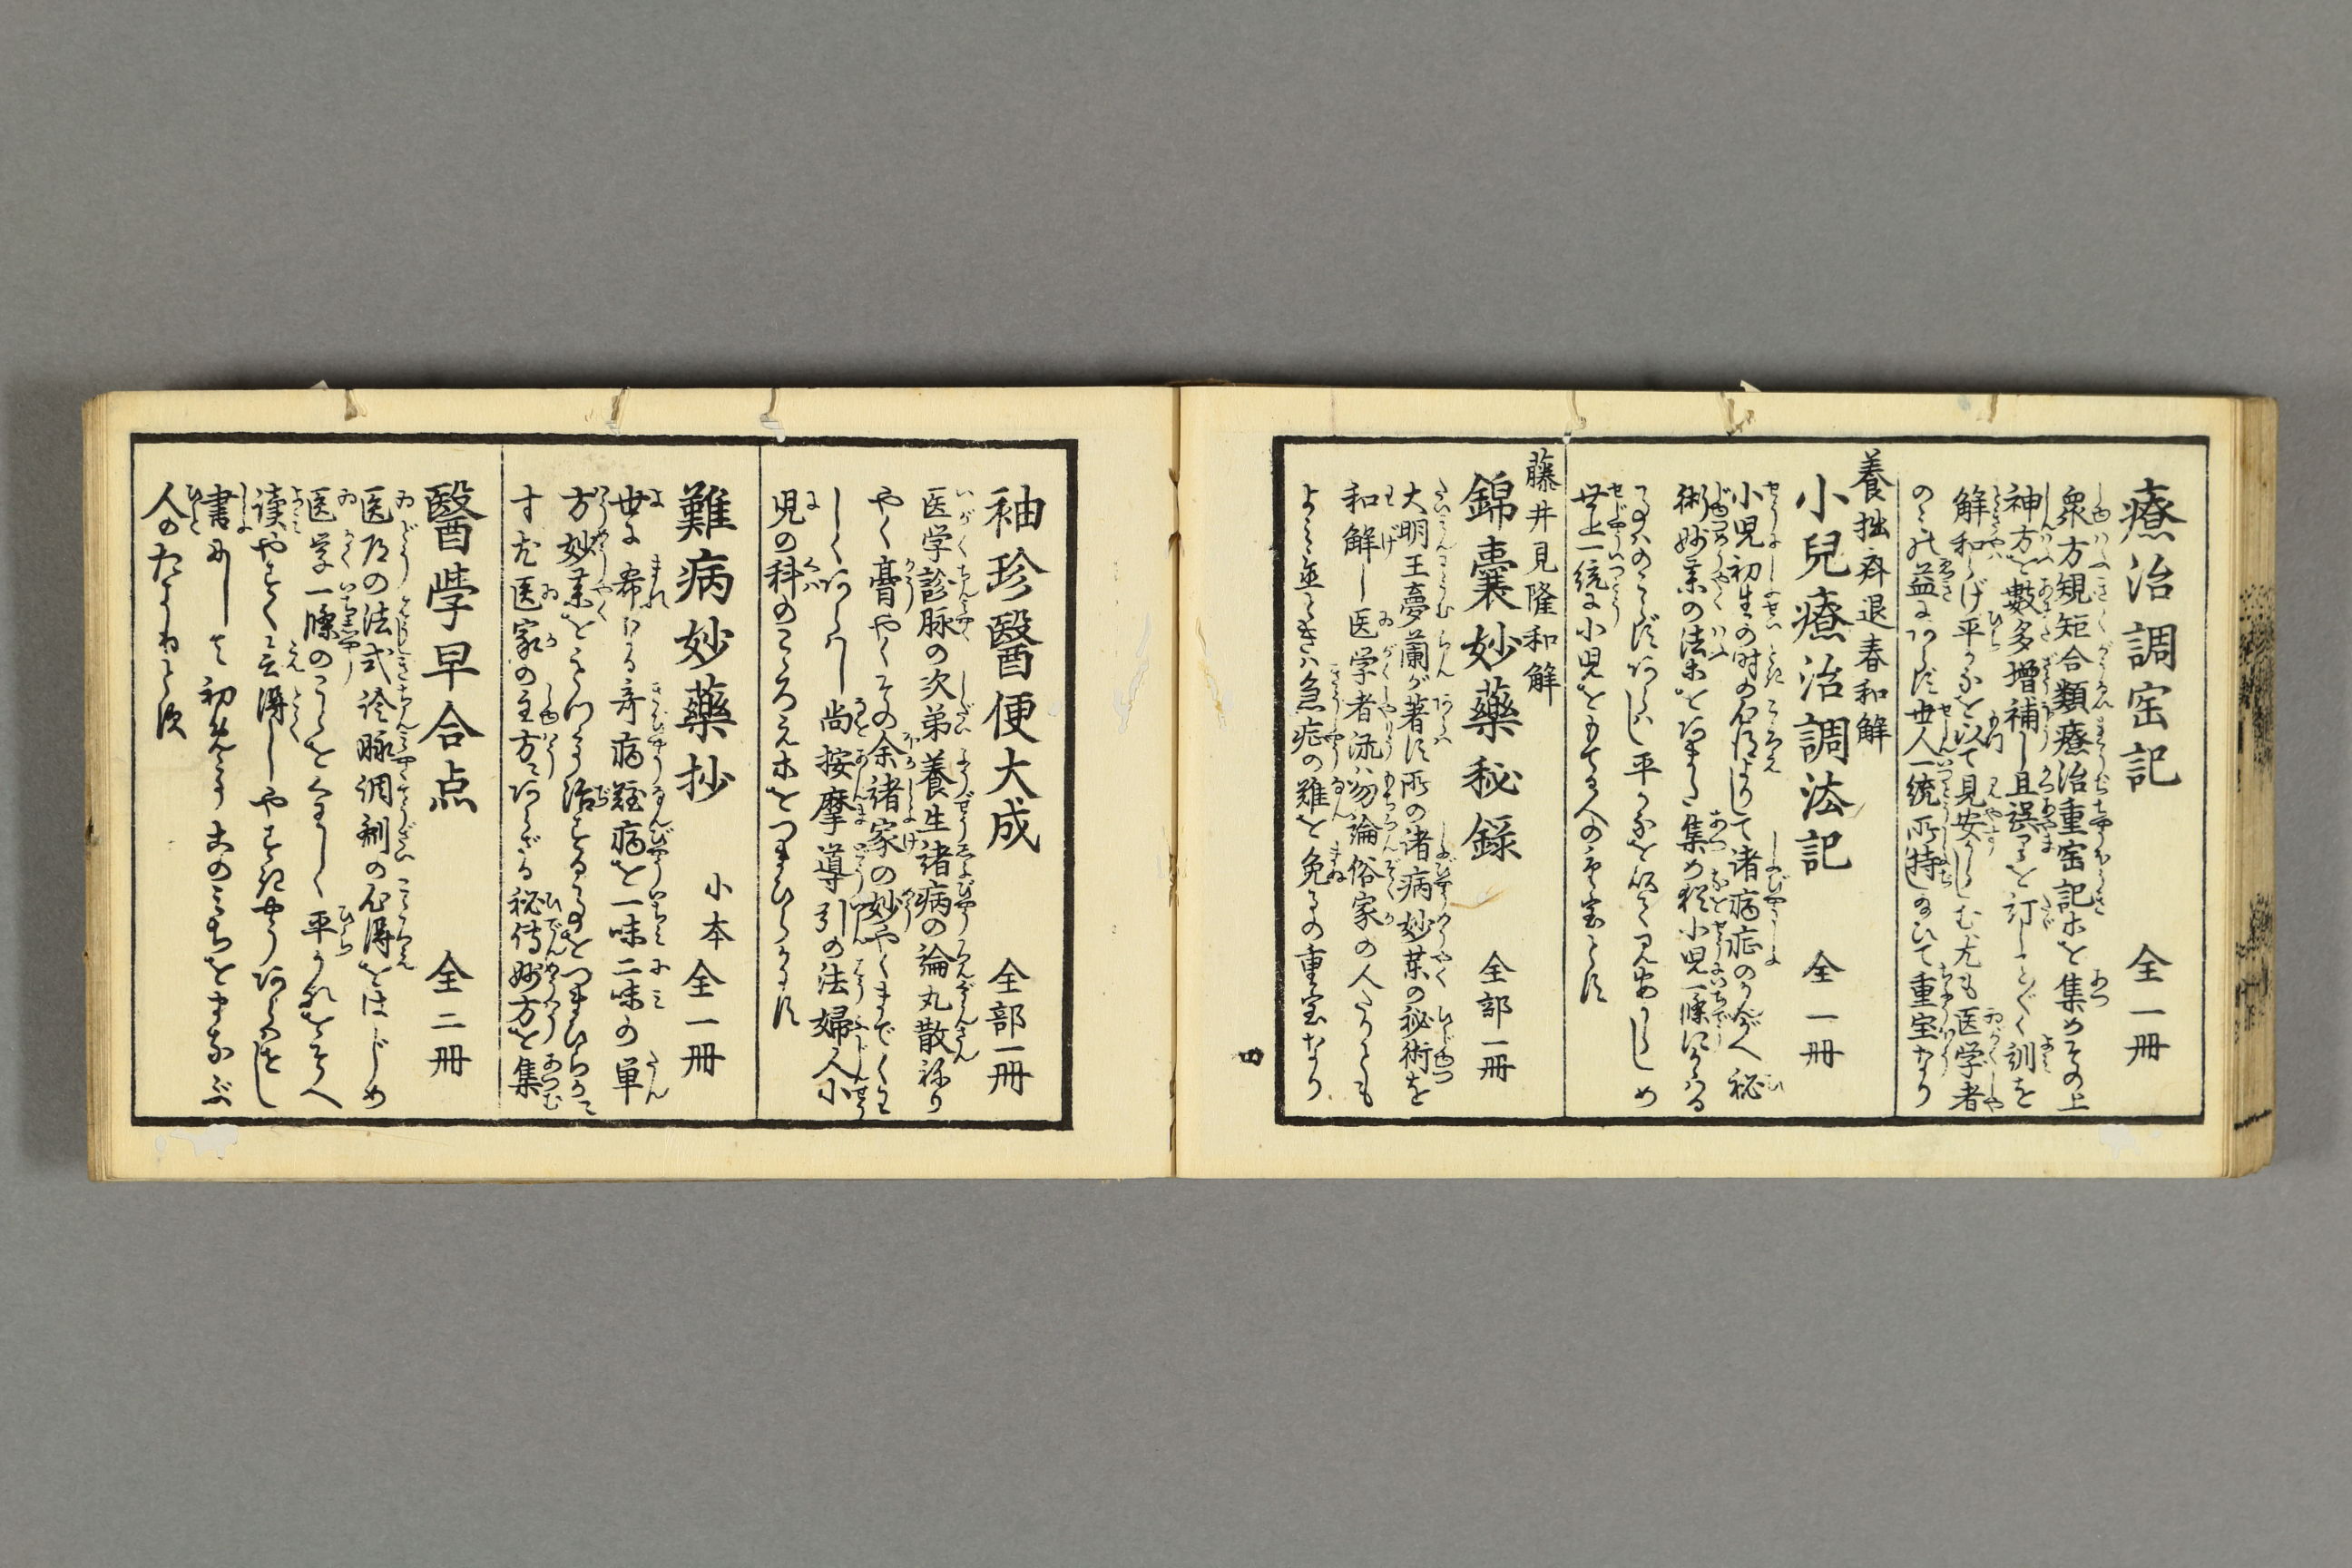 療治調宝記　全一冊
衆方規矩合類療治重宝記ホを集めその上
神方を数多増補し且誤を訂しことごとく訓を
解和らげ平がなを以て見安からしむ尤も医学者
のミの益にあらず世人一統所持し給ひて重宝なり
養拙斎退春和解
小兒療治調法記　全一冊
小児初生の时の心得よりして諸病症のうかゞへ秘
術妙薬の法ホをあまた集め殊小児一條にかゝはる
世上一統に小児をもてる人の重宝とす
藤井見隆和解
錦嚢妙藥秘録　全部一冊
大明王夢蘭が著す所の諸病妙薬の秘術を
和解し医学者流ハ勿論俗家の人たりとも
急症の難を免るの重宝なり
四
袖珍醫便大成　全部一冊
医学診脉の次第養生諸病の論丸散ねり
やく膏やくその余諸家の妙やくまでくわ
しくあらハし尚按摩導引の法婦人小
児の科のこゝろえホをつまひらかにす
難病妙藥抄　小本全一冊
世に希なる奇病難病を一味二味の単
方妙薬をもつて治する事をつまひらかに
す尤医家の主方にあらざる秘傳妙方を集
醫学早合点　全二冊
医道の法式診脉調剤の心得をはじめ
医学一條のことをくわしく平がなをそへ
読やすく会得しやすきやうあらはし
書にして初学のミちをまなぶ
人のたよりとす